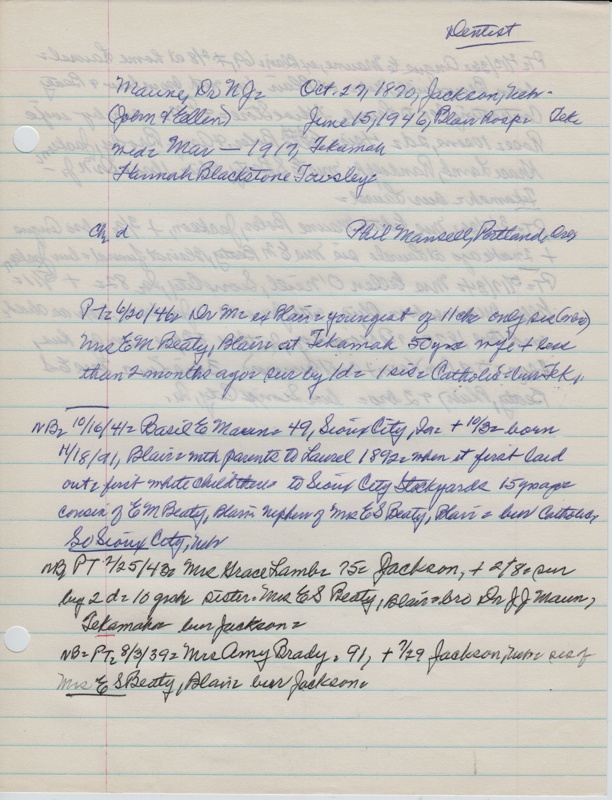 Dentist
Maune, Dr N J= Oct. 27, 1870, Jackson, Nebr-
(John & Ellen) June 15, 1946, Blair Hosp= Tek
med= Mar — 1917, Tekamah
Hannah Blackstone Towsley=
Ch= d Phil Mansell, Portland, Oreg
PT= 6/20/46= Dr M= ex Blair= youngest of 11 ch= only sis (now)
Mrs E M Beaty, Blair= at Tekamah 50 yrs= wife + less
than 2 months ago= sur by 1 d= 1 sis= Catholic= bur Tek.
NB= 10/16/41= Basil E Maun= 49, Sioux City, Ia= + 10/3= born
11/18/91, Blair= with parents to Laurel 1892= when it first laid
out= first white child there= to Sioux City Stockyards 15 yrs ago
cousin of E M Beaty, Blair= nephew of Mrs E S Beaty, Blair= bur Catholic,
So Sioux City, Nebr
NB PT 2/25/43= Mrs Grace Lamb= 75= Jackson, + 2/8= sur
by 2 d= 10 grch= sister= Mrs E S Beaty, Blair= bro Dr J J Maun,
Tekamah= bur Jackson=
NB= PT= 8/3/39= Mrs Amy Brady= 91, + 7/29 Jackson, Nebr= sis of
Mrs E S Beaty, Blair= bur Jackson=